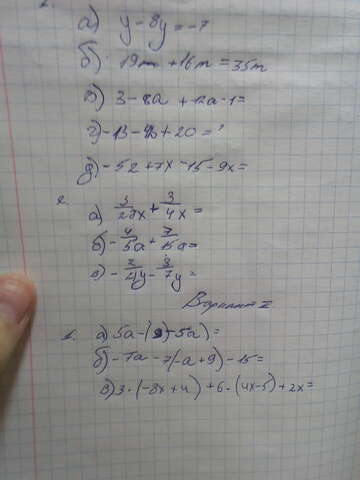 а) y-8y=-7
б) 19m+16m=35m
в) 3-8a+12a-1=
г) -13-4b+20=
д) -52+7x-15-9x=
2.
а) 3/28x+3/4x=
б) -4/5a+7/15a=
в) -2/21y-3/7y=
Вариант II
1. а) 5a-(9-5a)=
б) -7a-7(-a+9)-15=
в) 3·(-8x+4)+6·(4x-5)+2x=